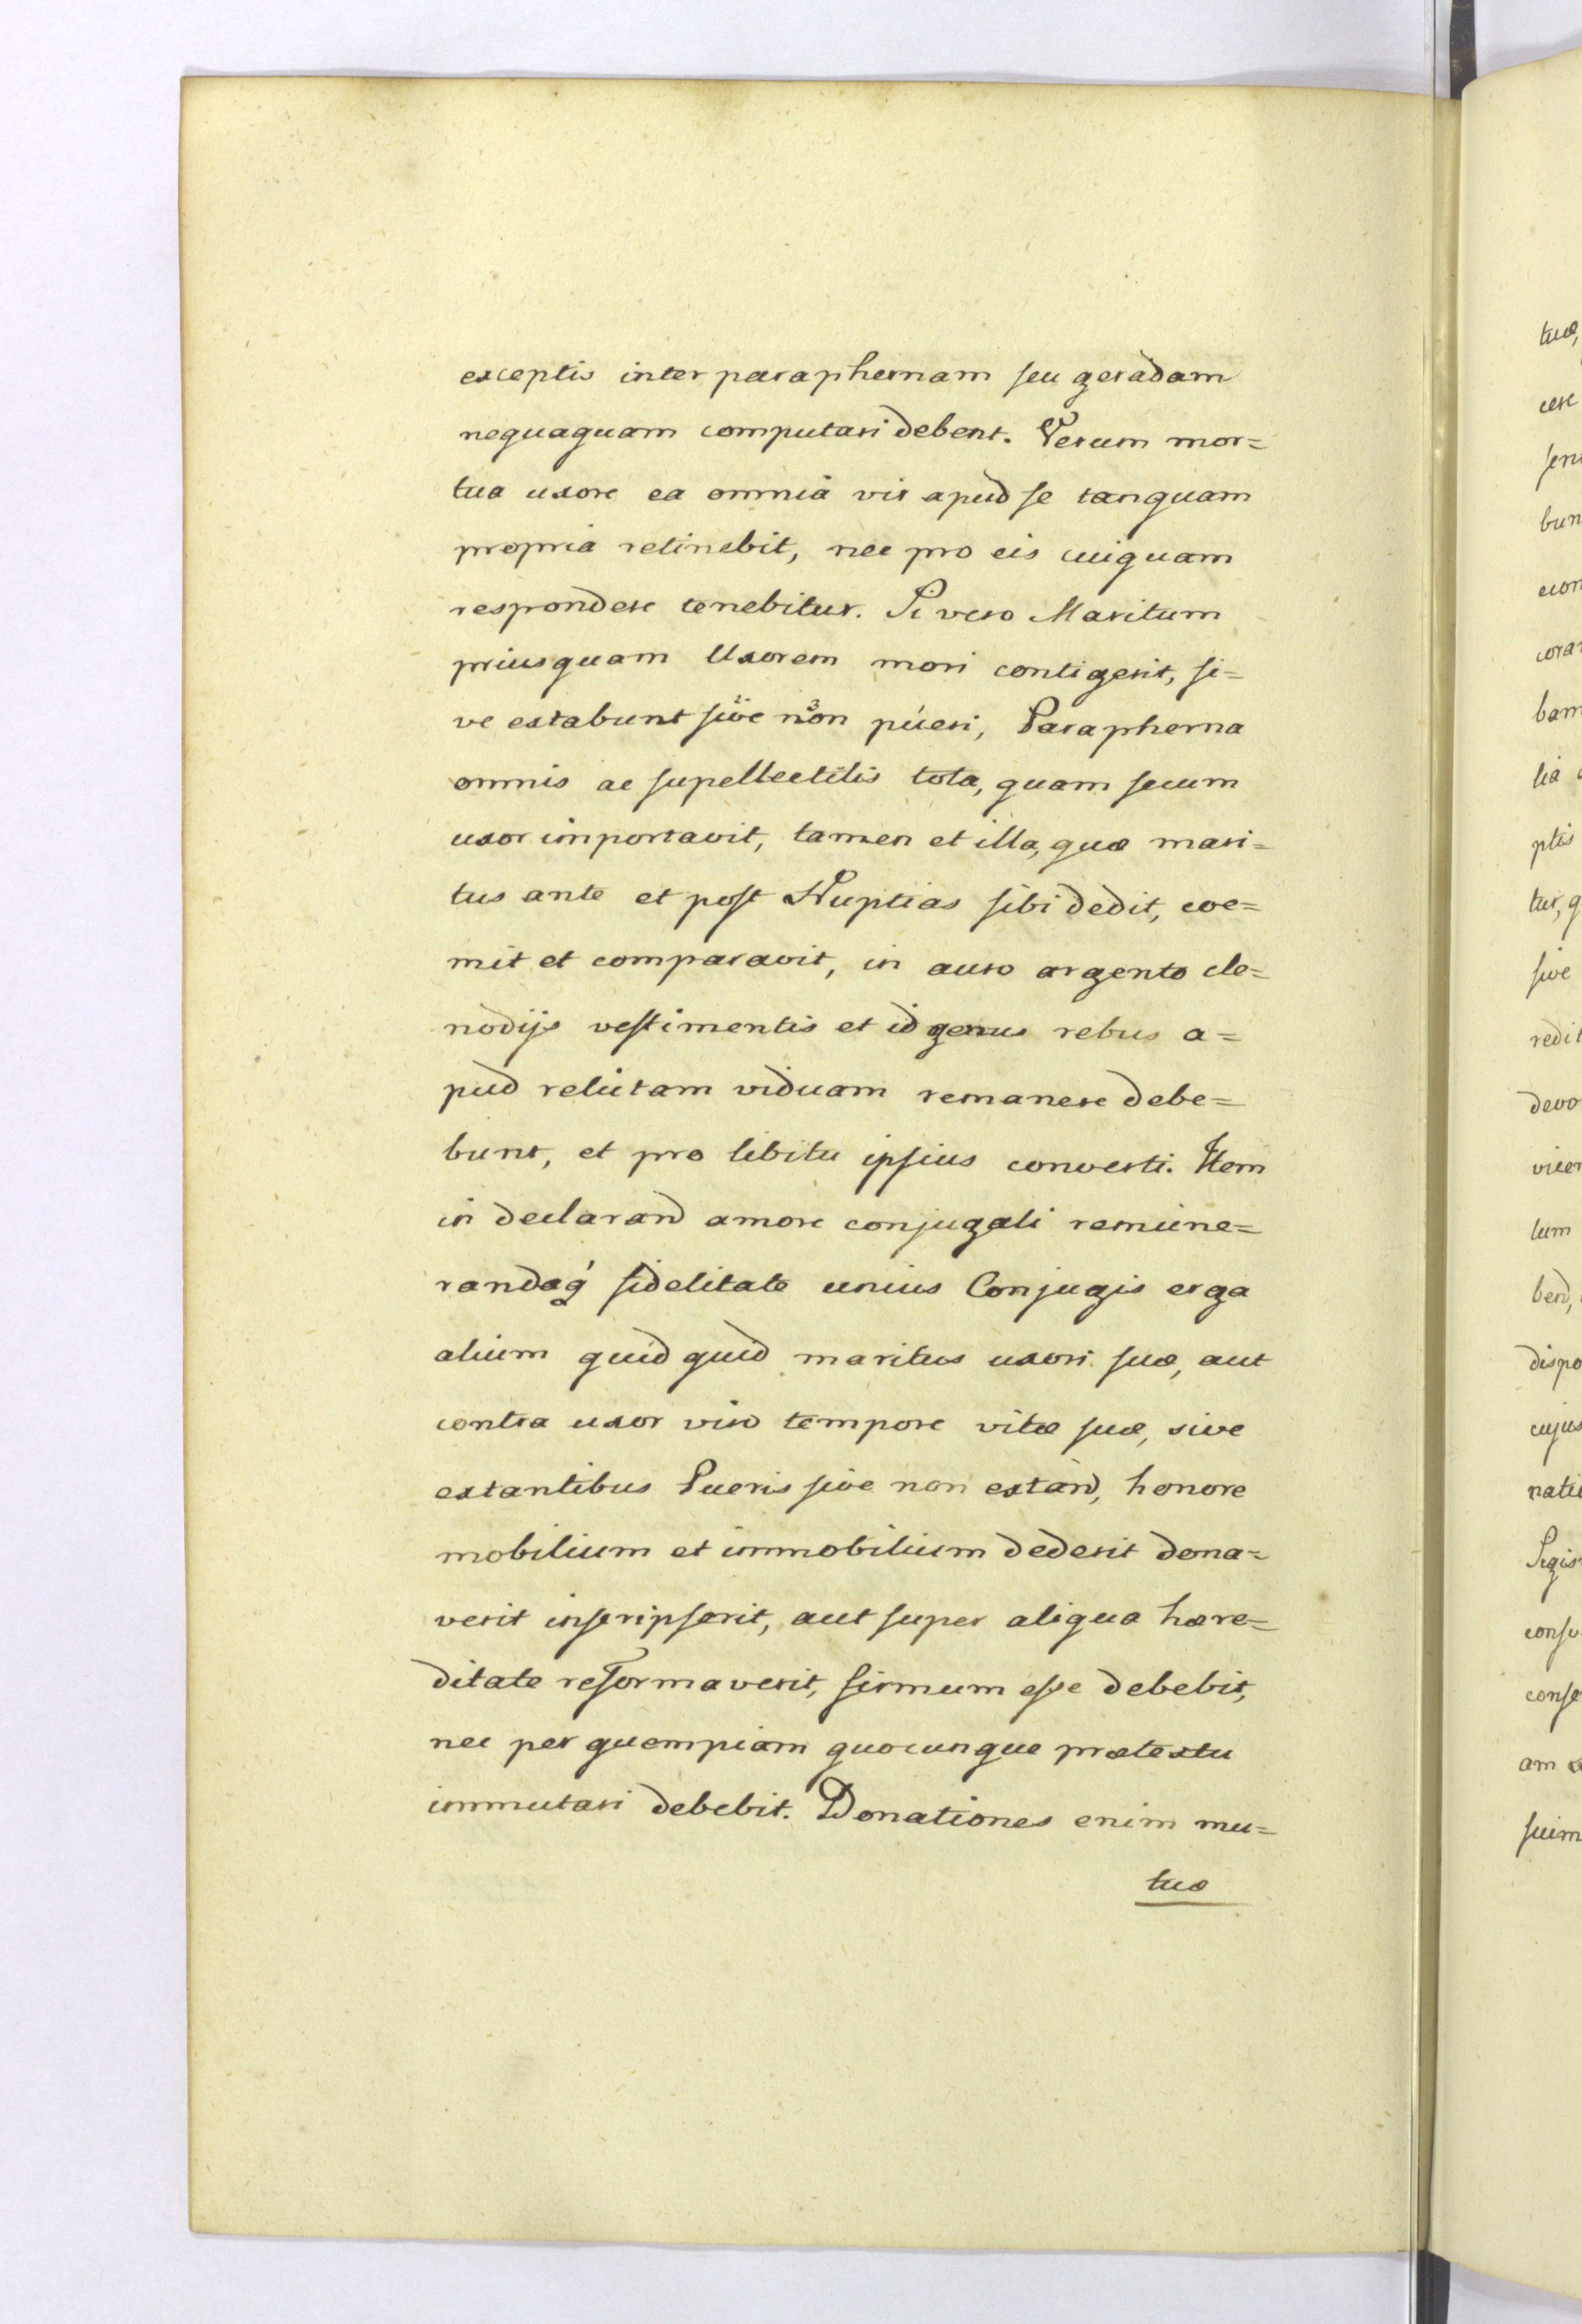 exceptis inter paraphernam seu geradam
nequaquam computari debent. Verum mor=
tua uxore ea omnia vir apud se tanquam
propria retinebit, nec pro eis cuiquam
respondere tenebitur. Si vero Maritum
priusquam Uxorem mori contigerit, si=
ve extabunt sive non pueri, Parapherna
omnis ac supellectilis tota, quam secum
uxor importavit, tamen et illa, quæ mari=
tus ante et post Nuptias sibi dedit, coe=
mit et comparavit, in auro argento cle=
nodijs vestimentis et id genus rebus a=
pud relictam viduam remanere debe=
bunt, et pro libitu ipsius converti. Item
in declarand amore conjugali remune=
randaq́ fidelitate unius Conjugis erga
alium quidquid maritus uxori suæ, aut
contra uxor viro tempore vitæ suæ, sive
extantibus Pueris sive non extand, honore
mobilium et immobilium dederit dona=
verit inscripserit, aut super aliqua hære=
ditate reformaverit, firmum esse debebit,
nec per quempiam quocunque prætextu
immutari debebit. Donationes enim mu=
tuæ
tuæ,
bun
coram
bam
lia
ptis
tur, q
sive
redit
devo
lum
bend,
dispo
cujus
Sigis
conse
am